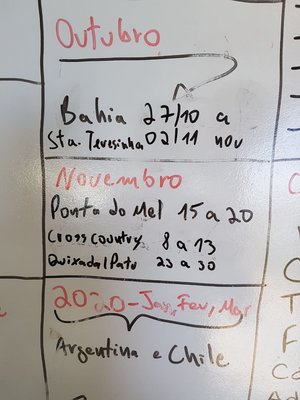 Outubro
Bahia 27/10 a
Sta. Teresinha 02/11 nov
Novembro
Ponta do Mel 15 a 20
Cross Country 8 a 13
Quixada/Patu 23 a 30
2020-Jan, Fev, Mar
Argentina e Chile